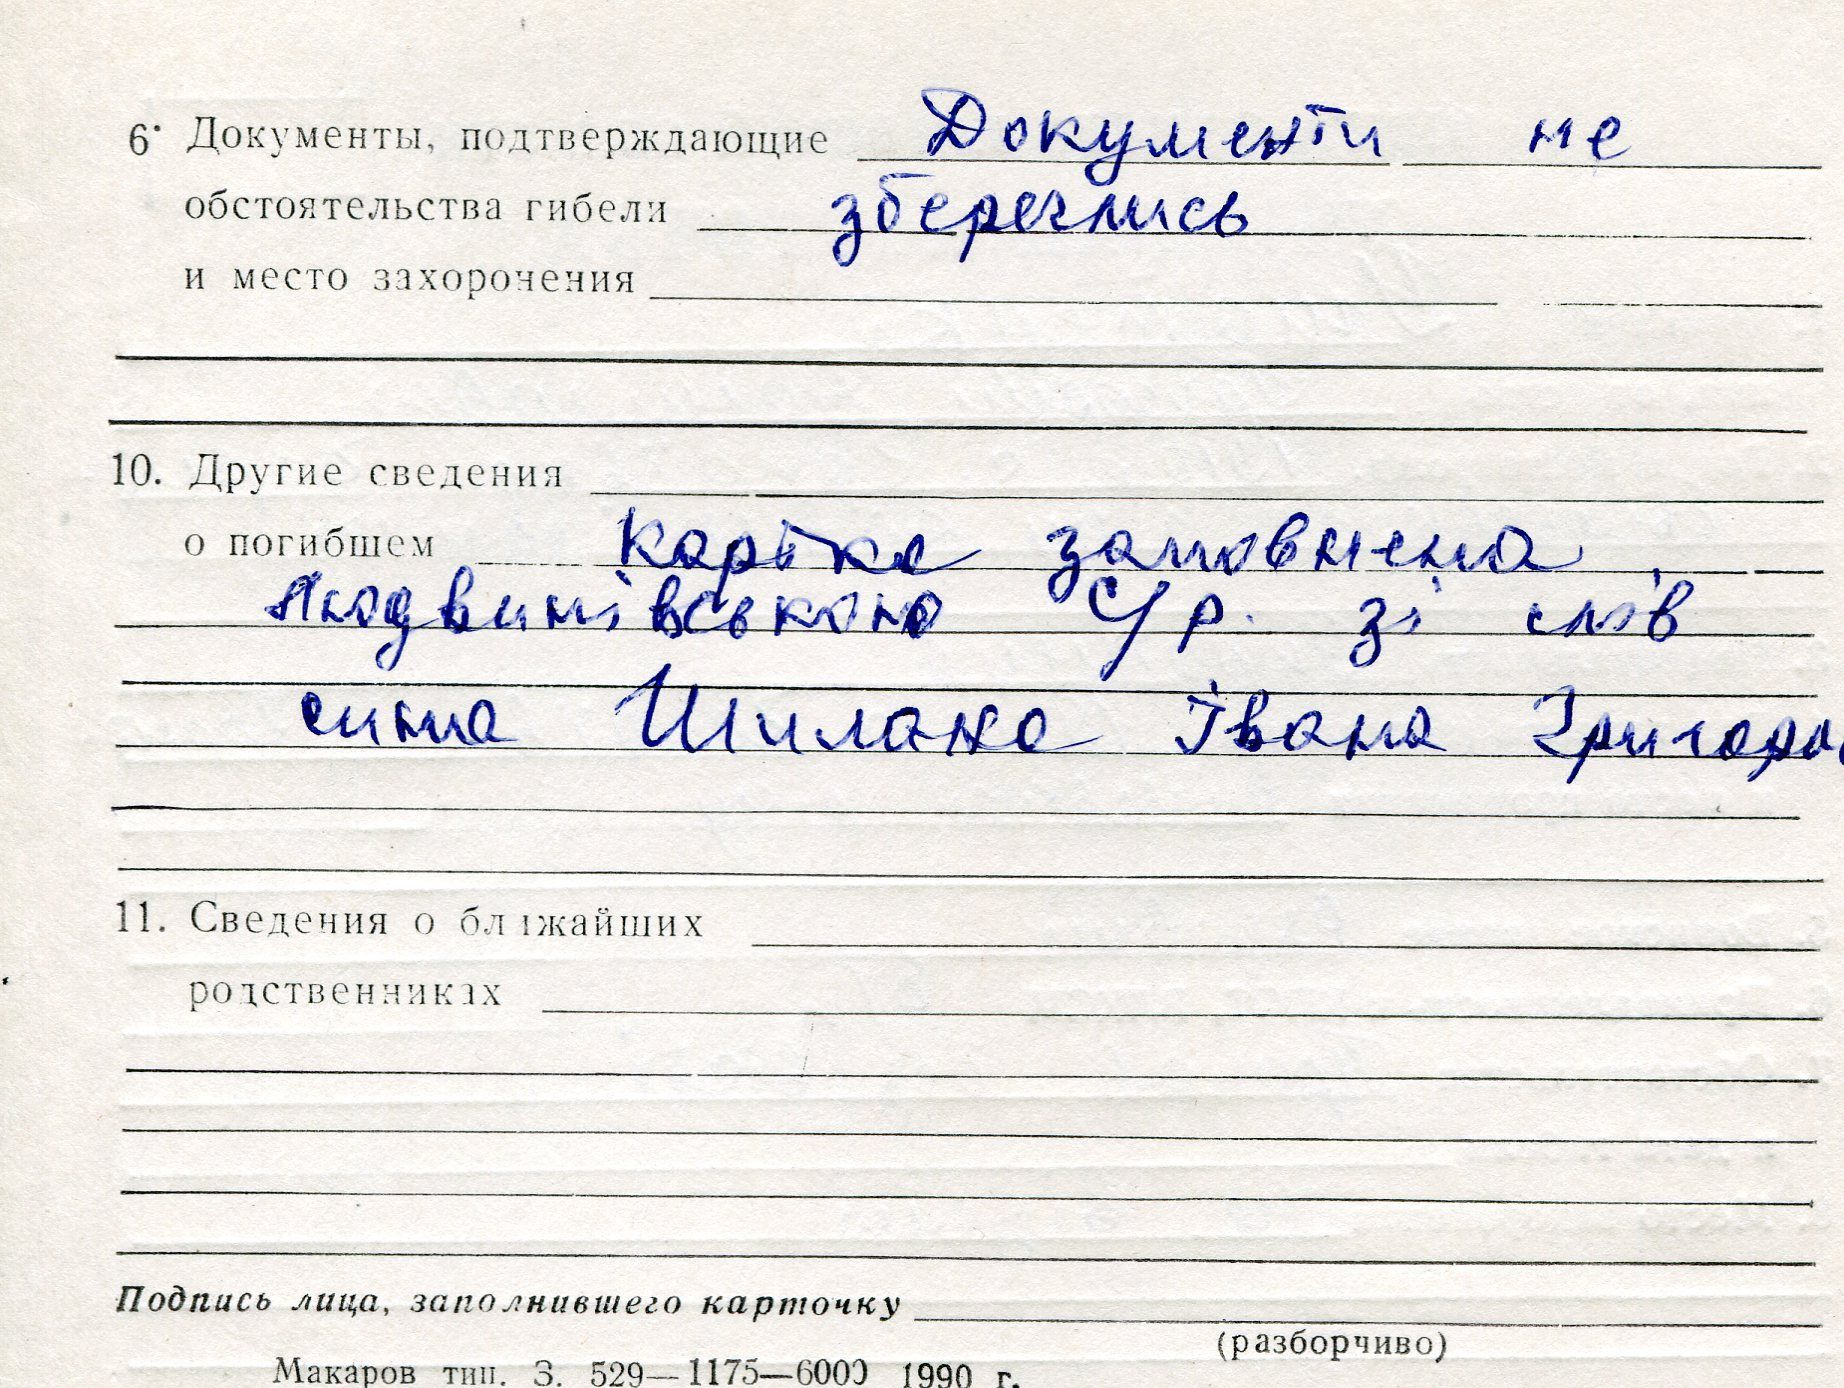 6. Документы, подтверждающие Документи не
обстоятельства гибели збереглись
и место захоронения
10. Другие сведения
о погибшем Картка заповнена
Людвинівською С/р. зі слів
сина Шилана Івана Григоров
11. Сведения о ближайших
родственниках
Подпись лица, заполнившего карточку
(разборчиво)
Макаров тип. З. 529—1175—6000 1990 г.